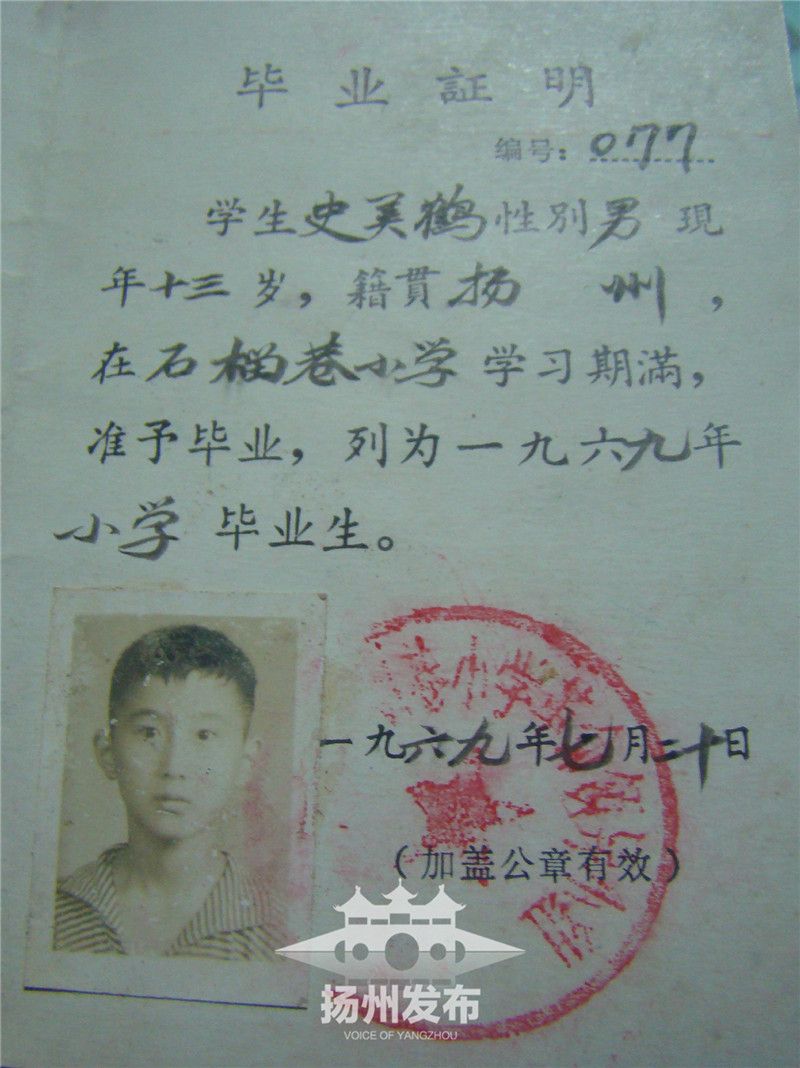 毕业証明
编号：077
学生史美鹤性别男 現
年十三岁，籍贯扬州，
在石榴巷小学 学习期滿，
准予毕业，列为一九六九年
小学 毕业生。
一九六九年七月二十日
（加盖公章有效）
扬州发布
VOICE OF YANGZHOU